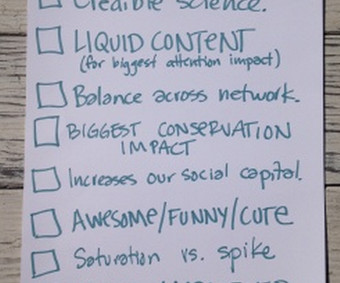 Credible science.
LIQUID CONTENT
(for biggest attention impact)
Balance across network.
BIGGEST CONSERVATION
IMPACT
Increases our social capital.
AWESOME/FUNNY/CUTE
Saturation vs. spike